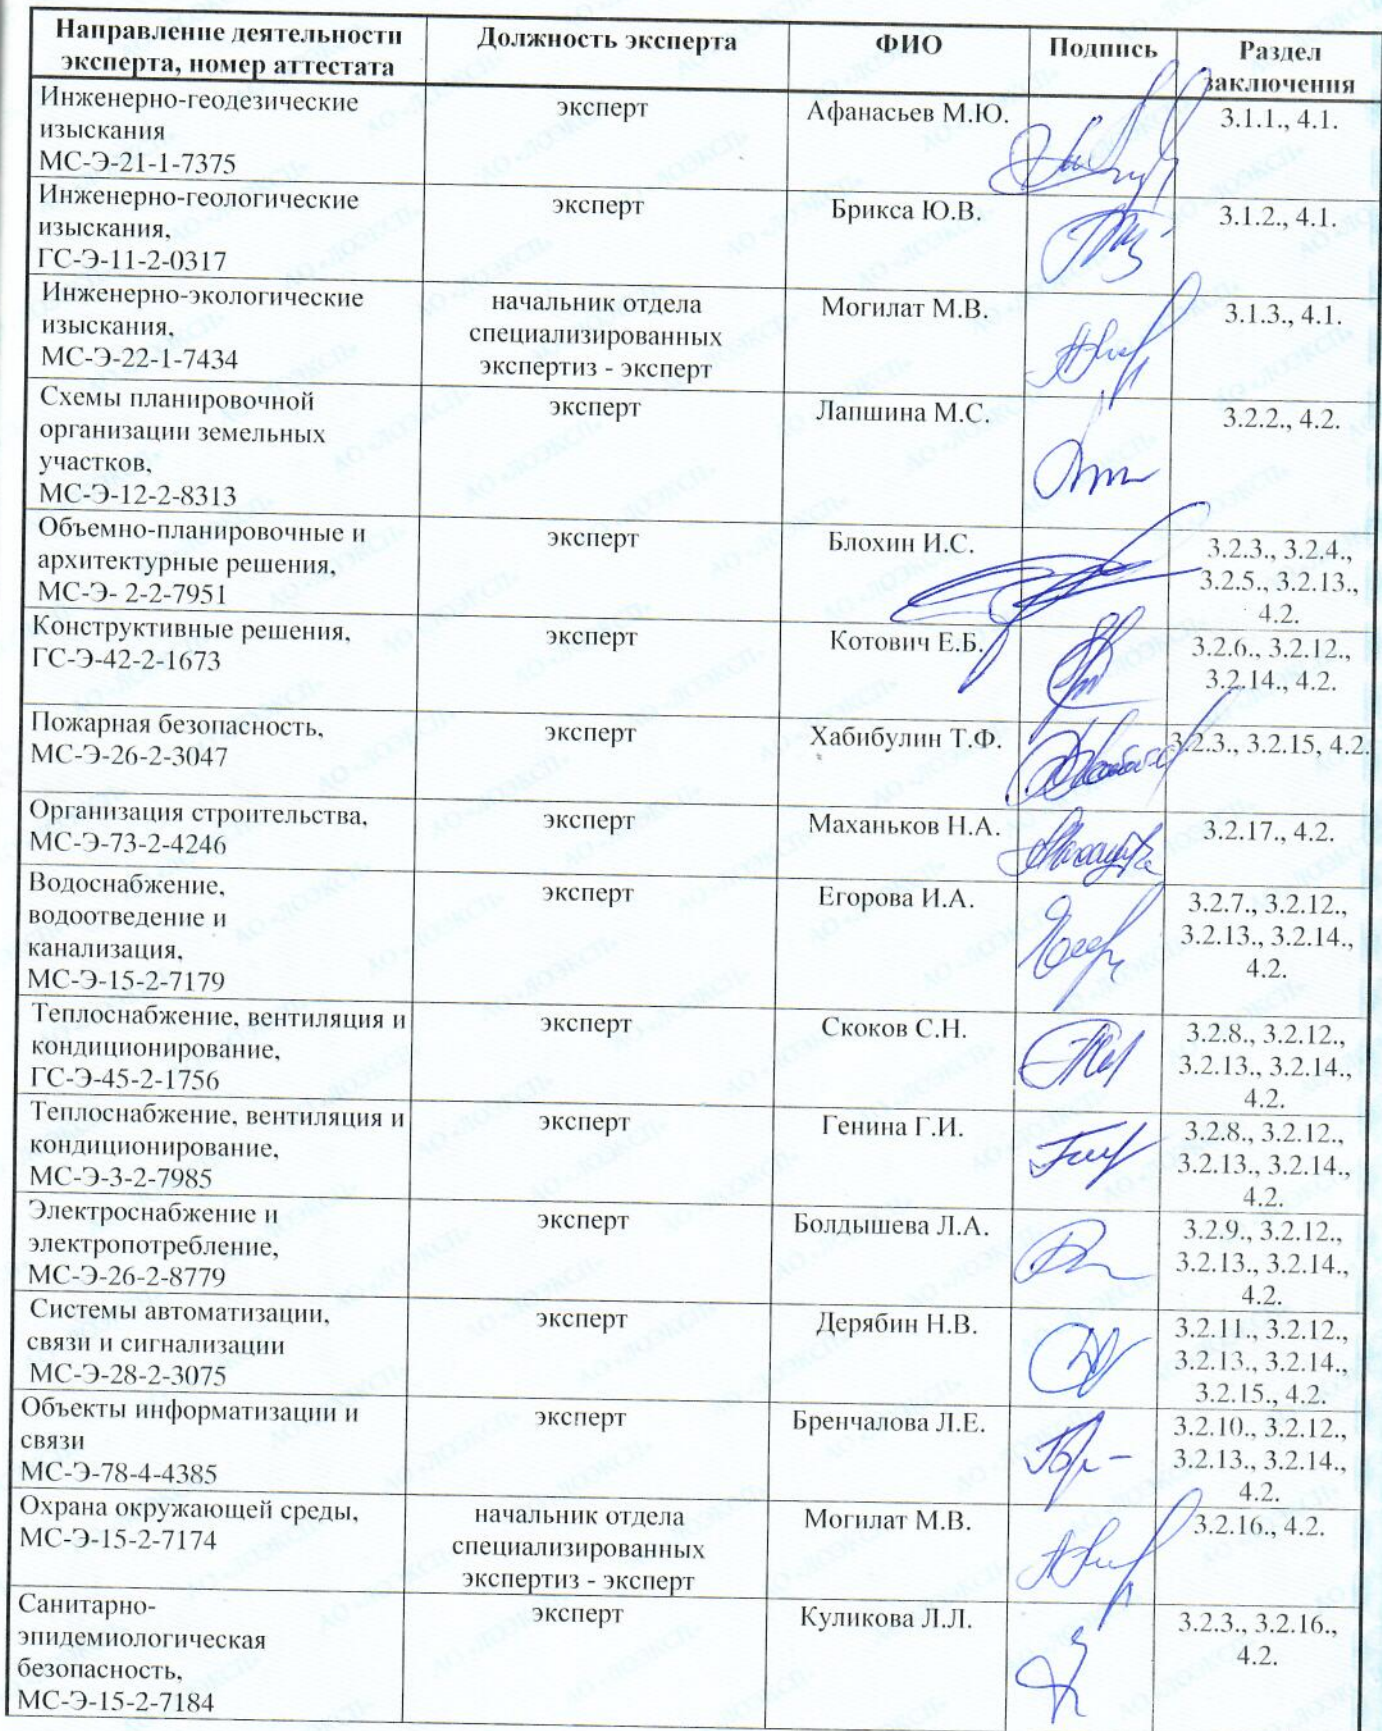 Направление деятельности эксперта, номер аттестата
Должность эксперта
ФИО
Подпись
Раздел заключения
Инженерно-геодезические
изыскания
МС-Э-21-1-7375
эксперт
Афанасьев М.Ю.
3.1.1., 4.1.
Инженерно-геологические
изыскания,
ГС-Э-11-2-0317
эксперт
Брикса Ю.В.
3.1.2., 4.1.
Инженерно-экологические
изыскания,
МС-Э-22-1-7434
начальник отдела
специализированных
экспертиз - эксперт
Могилат М.В.
3.1.3., 4.1.
Схемы планировочной
организации земельных
участков,
МС-Э-12-2-8313
эксперт
Лапшина М.С.
3.2.2., 4.2.
Объемно-планировочные и
архитектурные решения,
МС-Э- 2-2-7951
эксперт
Блохин И.С.
3.2.3., 3.2.4.,
3.2.5., 3.2.13.,
4.2.
Конструктивные решения,
ГС-Э-42-2-1673
эксперт
Котович Е.Б.
3.2.6., 3.2.12.,
3.2.14., 4.2.
Пожарная безопасность,
МС-Э-26-2-3047
эксперт
Хабибулин Т.Ф.
3.2.3., 3.2.15, 4.2.
Организация строительства,
МС-Э-73-2-4246
эксперт
Маханьков Н.А.
3.2.17., 4.2.
Водоснабжение,
водоотведение и
канализация,
МС-Э-15-2-7179
эксперт
Егорова И.А.
3.2.7., 3.2.12.,
3.2.13., 3.2.14.,
4.2.
Теплоснабжение, вентиляция и
кондиционирование,
ГС-Э-45-2-1756
эксперт
Скоков С.Н.
3.2.8., 3.2.12.,
3.2.13., 3.2.14.,
4.2.
Теплоснабжение, вентиляция и
кондиционирование,
МС-Э-3-2-7985
эксперт
Генина Г.И.
3.2.8., 3.2.12.,
3.2.13., 3.2.14.,
4.2.
Электроснабжение и
электропотребление,
МС-Э-26-2-8779
эксперт
Болдышева Л.А.
3.2.9., 3.2.12.,
3.2.13., 3.2.14.,
4.2.
Системы автоматизации,
связи и сигнализации
МС-Э-28-2-3075
эксперт
Дерябин Н.В.
3.2.11., 3.2.12.,
3.2.13., 3.2.14.,
3.2.15., 4.2.
Объекты информатизации и
связи
МС-Э-78-4-4385
эксперт
Бренчалова Л.Е.
3.2.10., 3.2.12.,
3.2.13., 3.2.14.,
4.2.
Охрана окружающей среды,
МС-Э-15-2-7174
начальник отдела
специализированных
экспертиз - эксперт
Могилат М.В.
3.2.16., 4.2.
Санитарно-
эпидемиологическая
безопасность,
МС-Э-15-2-7184
эксперт
Куликова Л.Л.
3.2.3., 3.2.16.,
4.2.